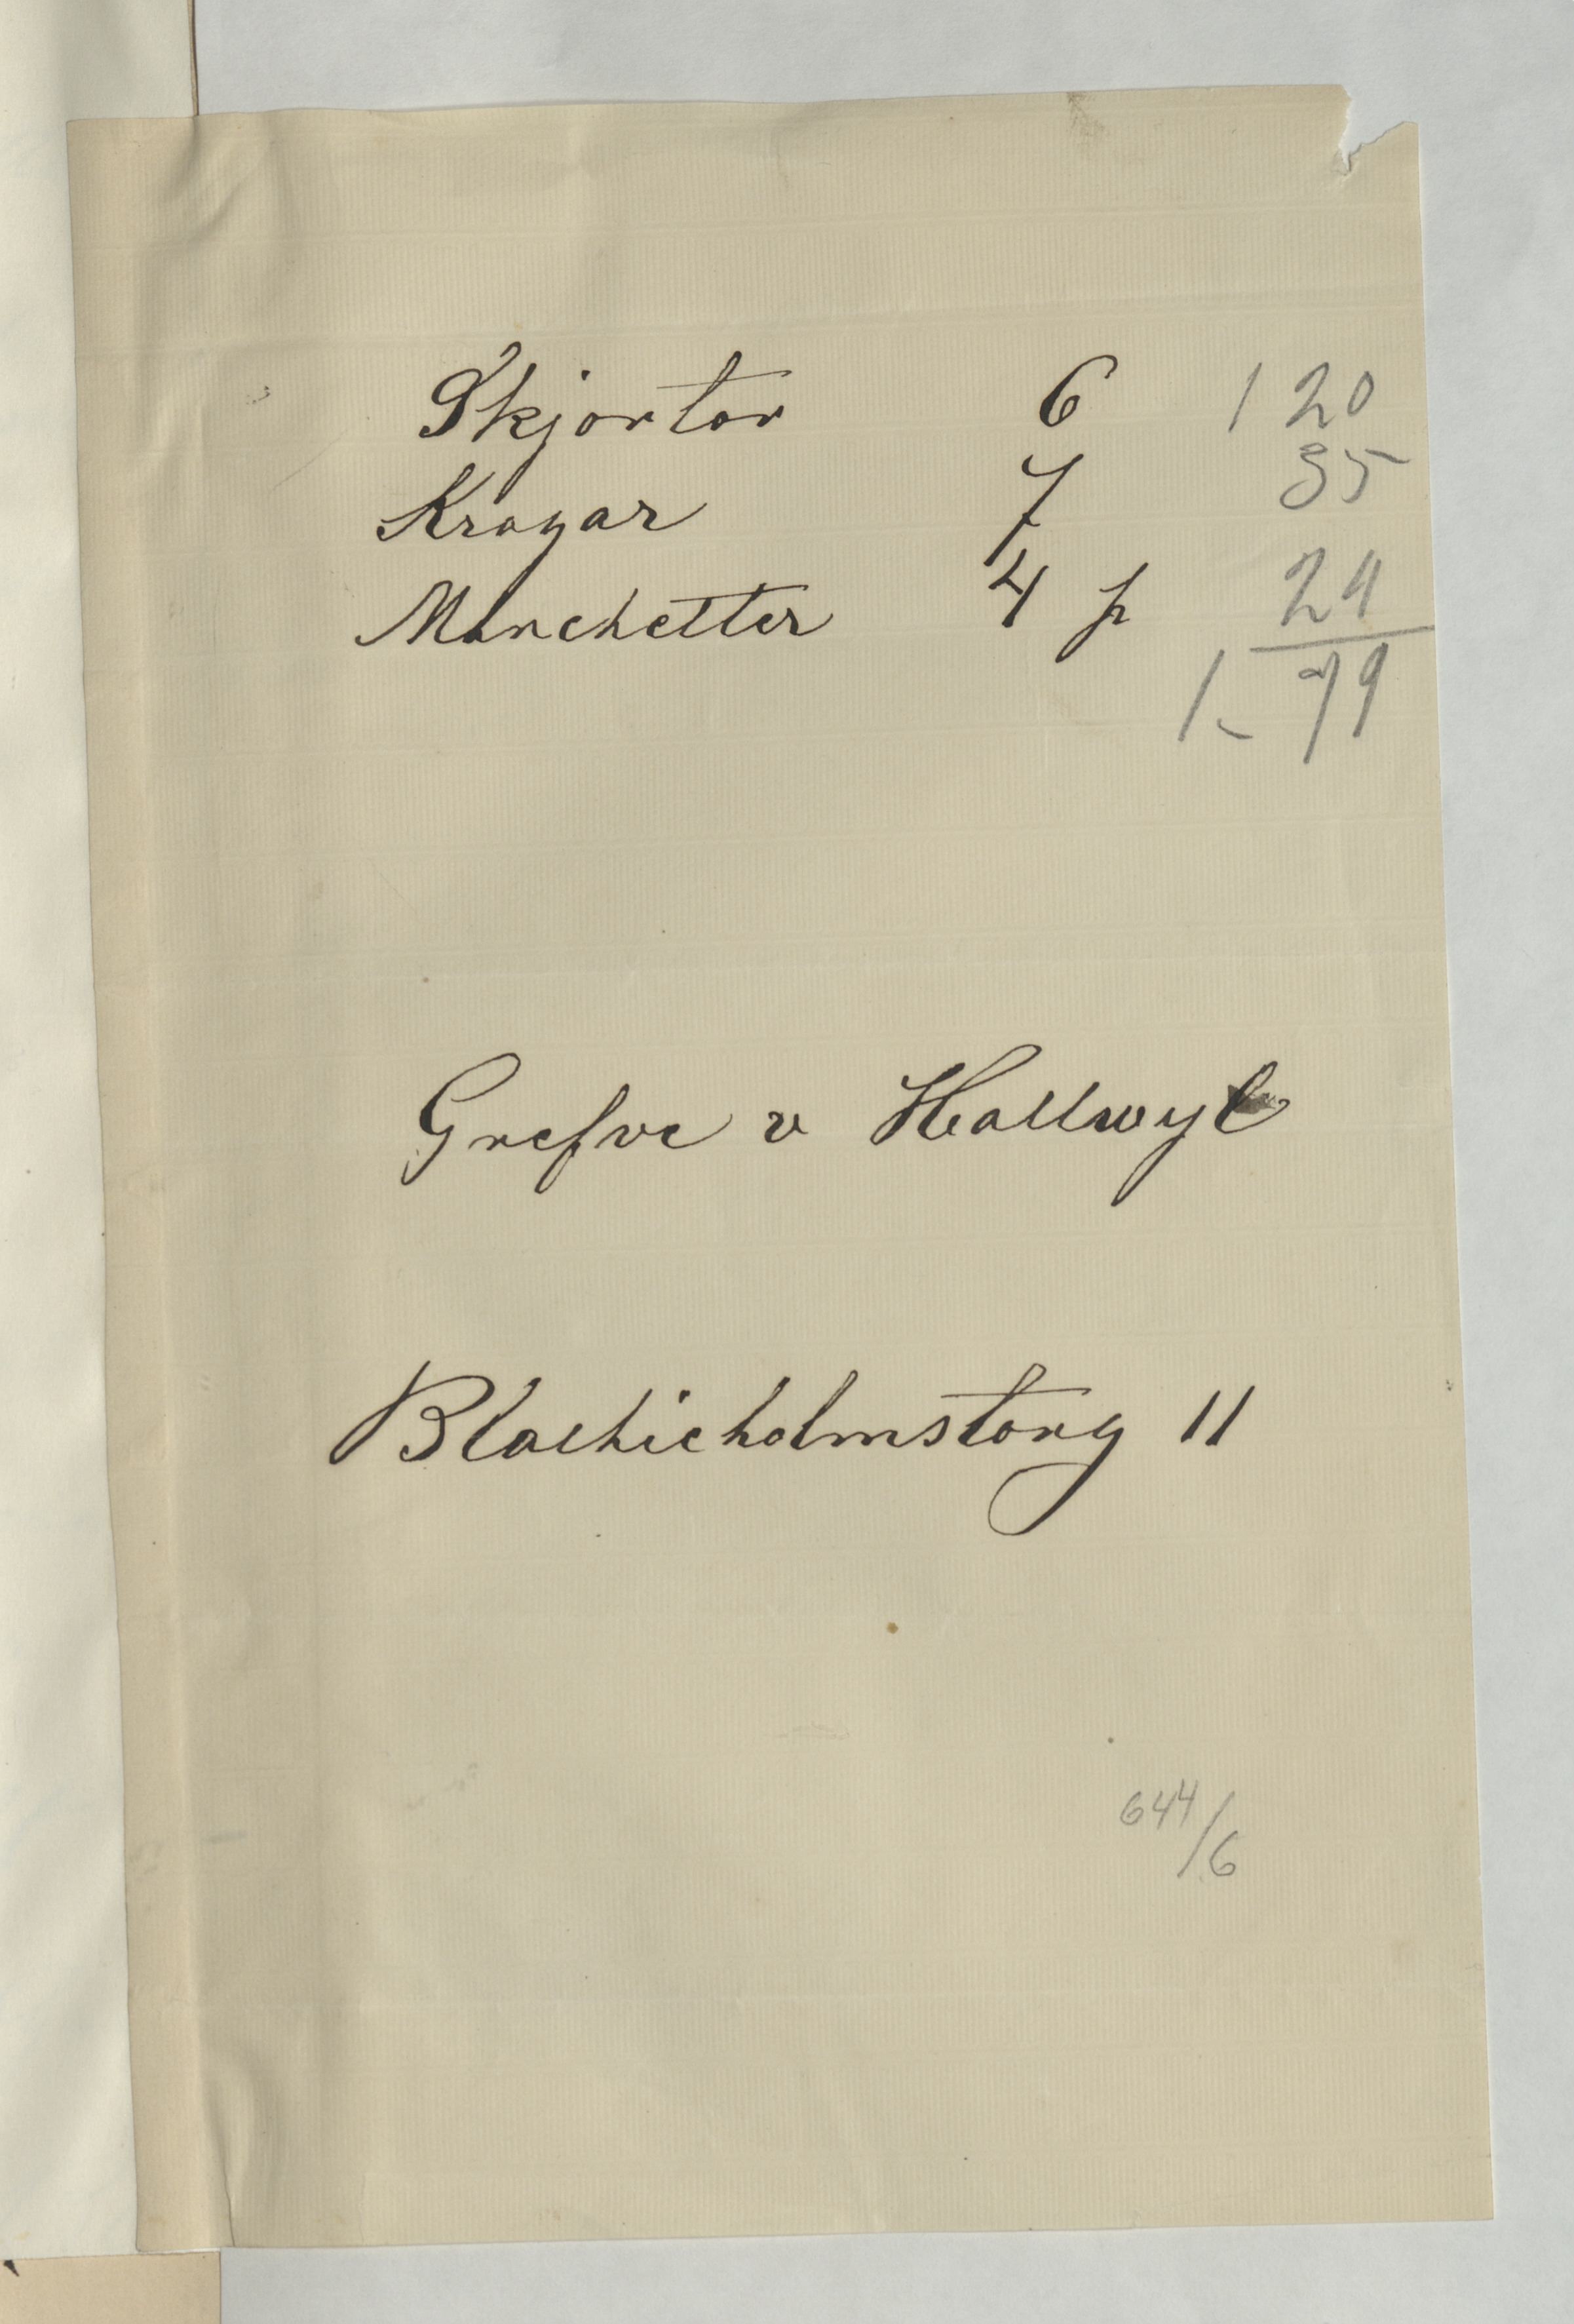 Skjortor 6 1 20
Kragar 7 35
Manchetter 4 p 24
1 - 79
Grefve v Hallwyl
Blasieholmstorg 11
644/6